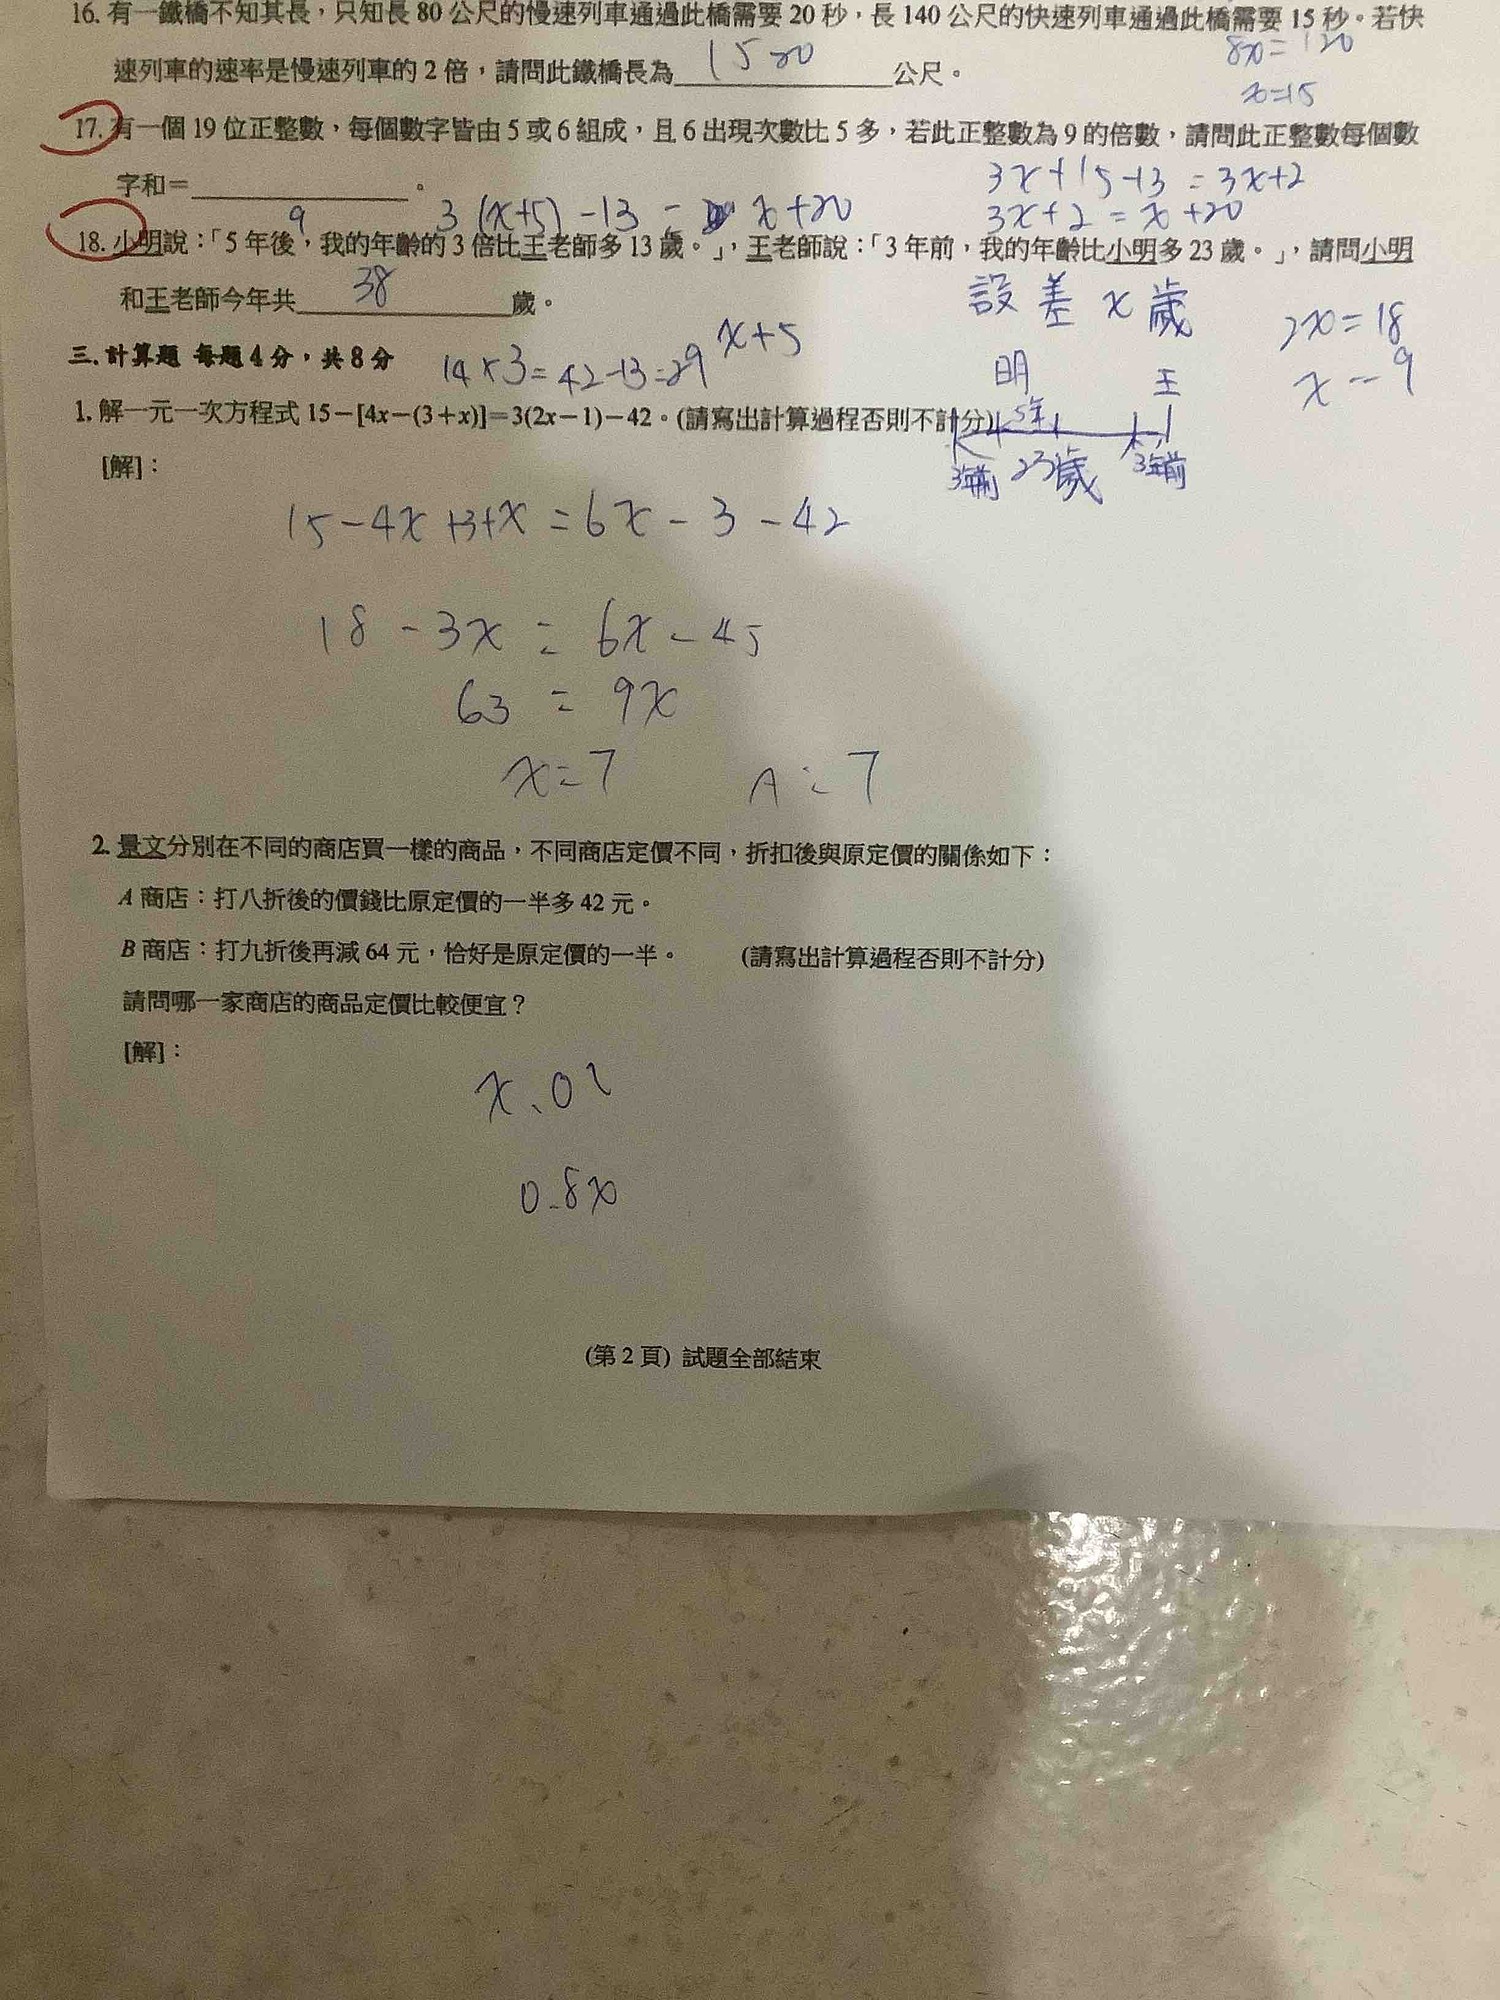 16. 有一鐵橋不知其長，只知長 80 公尺的慢速列車通過此橋需要 20 秒，長 140 公尺的快速列車通過此橋需要 15 秒。若快
速列車的速率是慢速列車的 2 倍，請問此鐵橋長為 1520 公尺。
8x=120
x=15
17. 有一個 19 位正整數，每個數字皆由 5 或 6 組成，且 6 出現次數比 5 多，若此正整數為 9 的倍數，請問此正整數每個數
字和＝ 。
3x+15-13=3x+2
9 3(x+5)-13= x+20
3x+2=x+20
18. 小明說：「5 年後，我的年齡的 3 倍比王老師多 13 歲。」，王老師說：「3 年前，我的年齡比小明多 23 歲。」，請問小明
和王老師今年共 38 歲。
設差 x 歲
2x=18
x=9
三. 計算題 每題 4 分，共 8 分
14×3=42-13=29
x+5
明 王
1. 解一元一次方程式 15－[4x－(3＋x)]＝3(2x－1)－42。(請寫出計算過程否則不計分)
5年
3年前 23歲 3年前
[解]：
15-4x+3+x=6x-3-42
18-3x=6x-45
63=9x
x=7 A:7
2. 景文分別在不同的商店買一樣的商品，不同商店定價不同，折扣後與原定價的關係如下：
A 商店：打八折後的價錢比原定價的一半多 42 元。
B 商店：打九折後再減 64 元，恰好是原定價的一半。 (請寫出計算過程否則不計分)
請問哪一家商店的商品定價比較便宜？
[解]：
0.8x
(第 2 頁) 試題全部結束